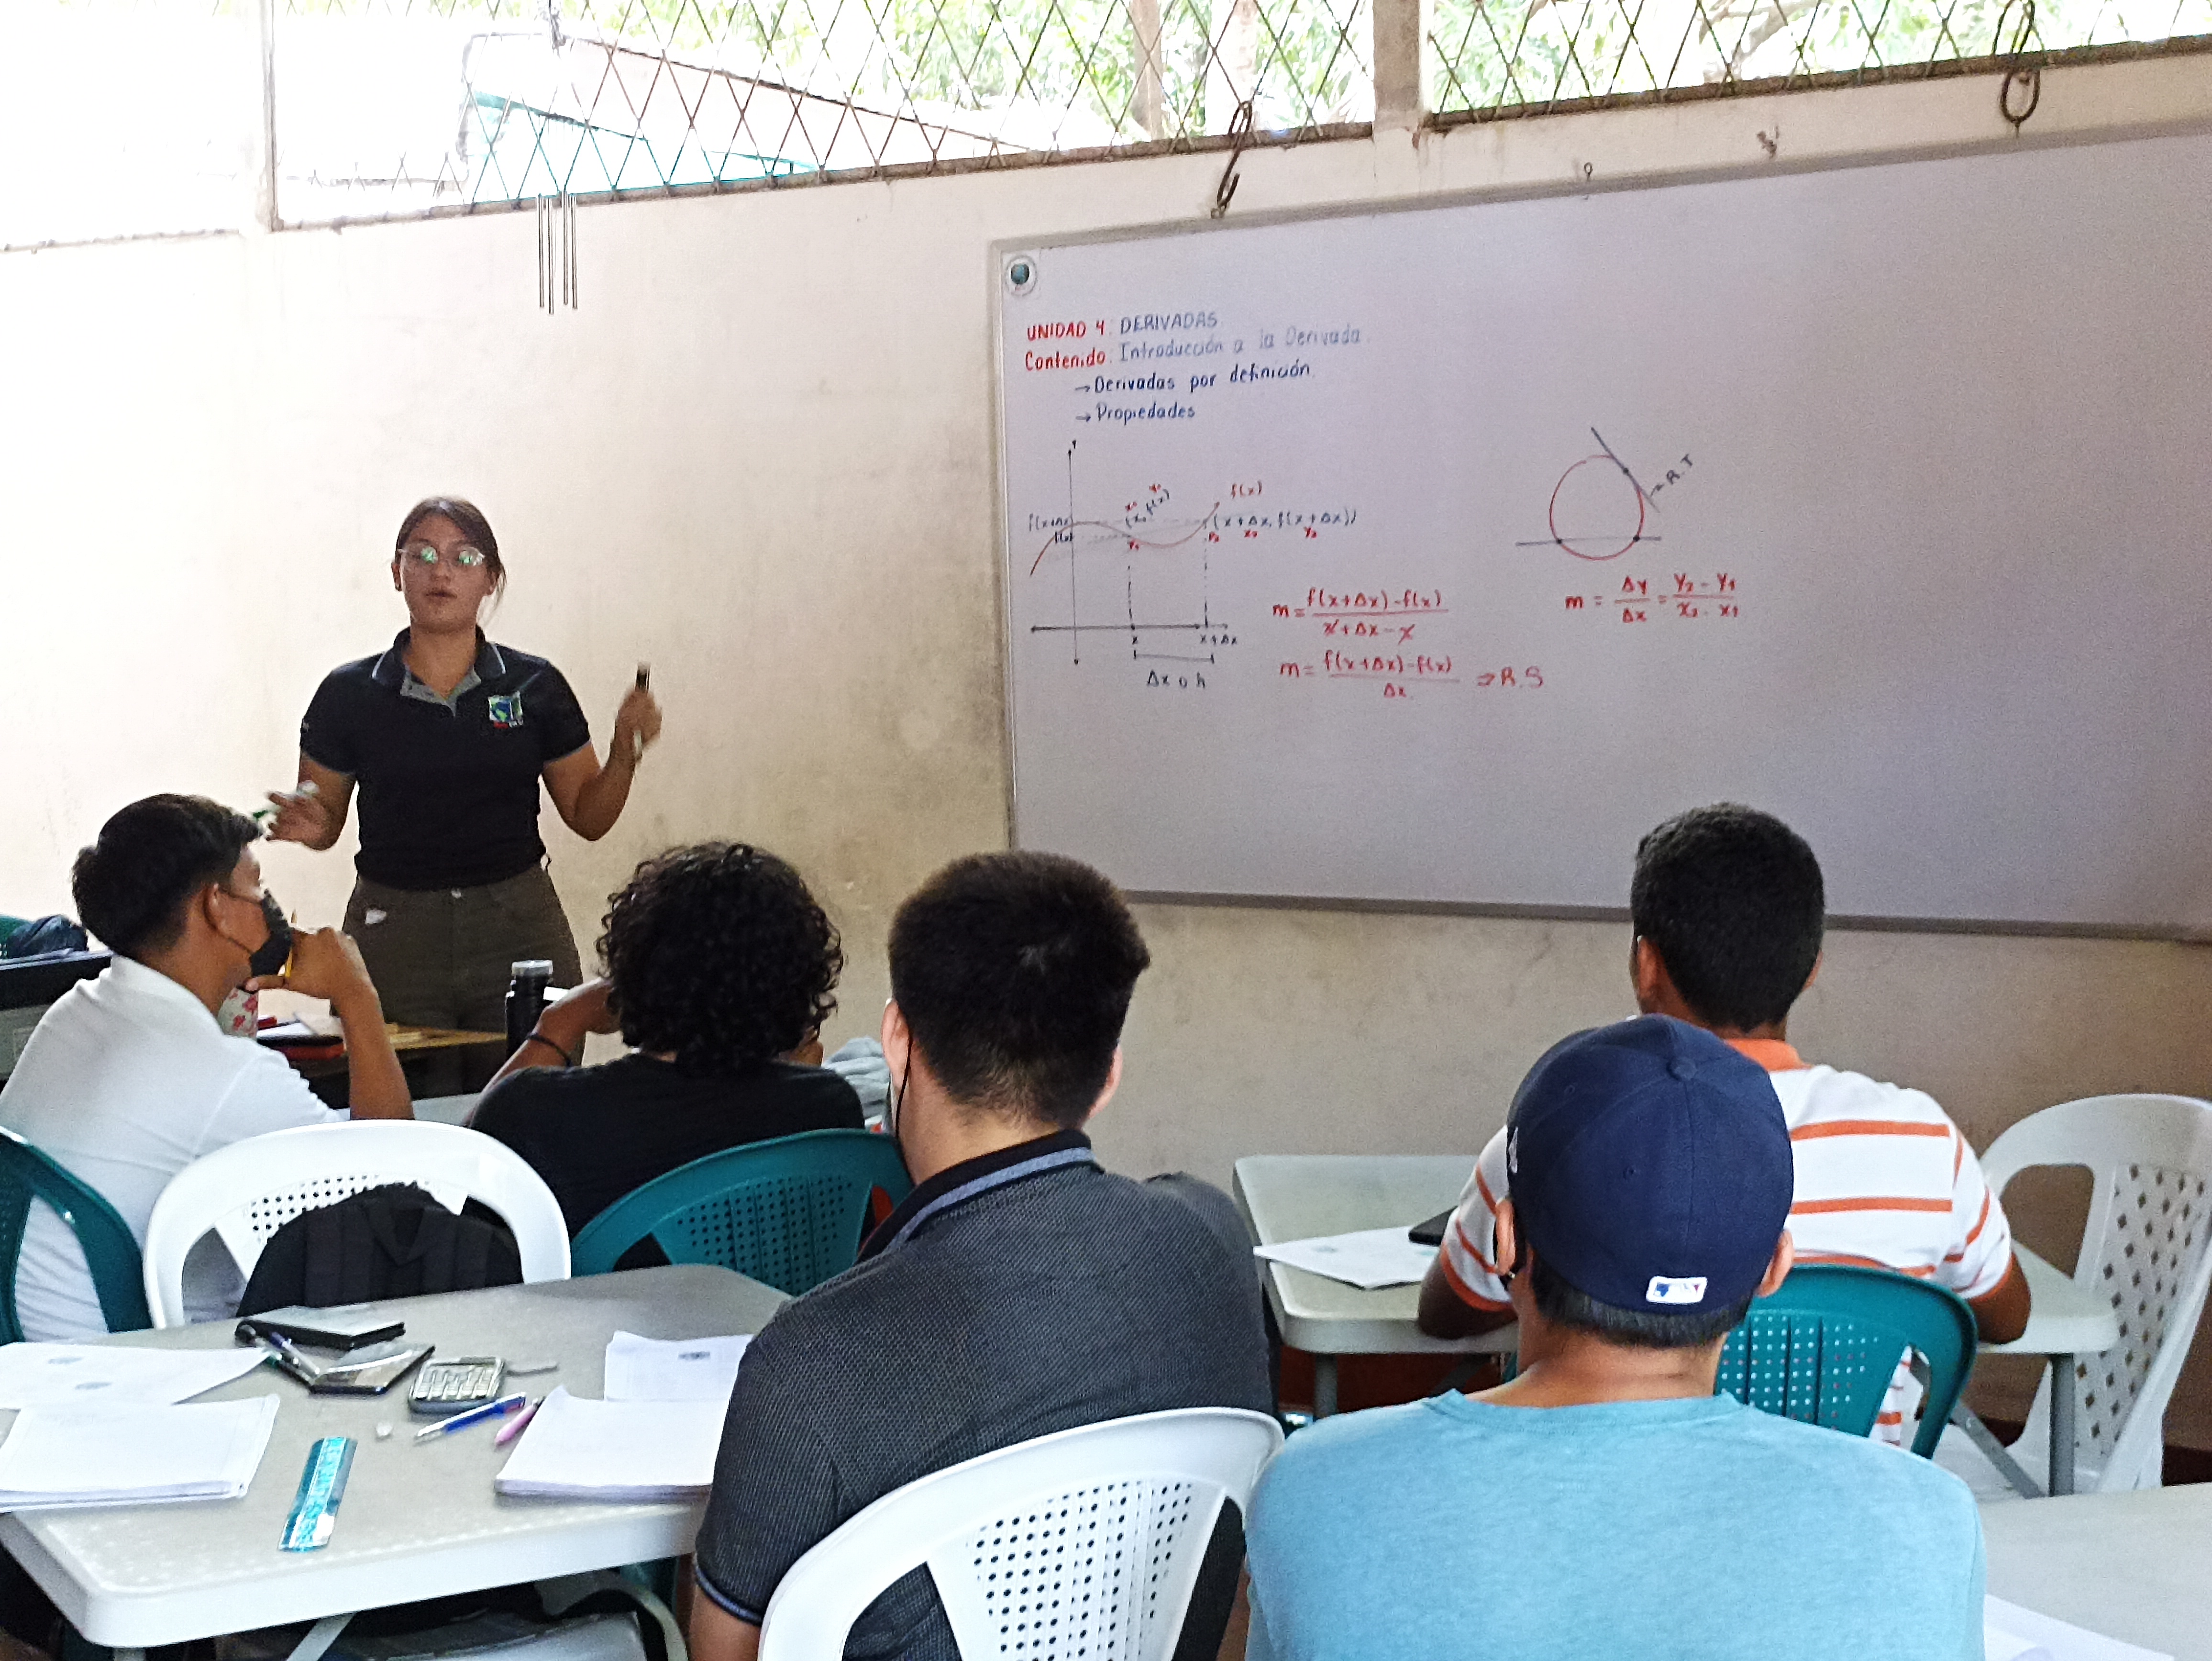 UNIDAD 4: DERIVADAS
Contenido: Introducción a la Derivada.
→ Derivadas por definición.
→ Propiedades
Y
f(x)
f(x+Δx)
f(x)
(x, f(x))
(x+Δx, f(x+Δx))
P₂ x₂ y₂
x x+Δx
Δx o h
m = f(x+Δx)-f(x) / x+Δx-x
m = f(x+Δx)-f(x) / Δx ⇒ R.S
→ R.T
m = Δy / Δx = y₂ - y₁ / x₂ - x₁